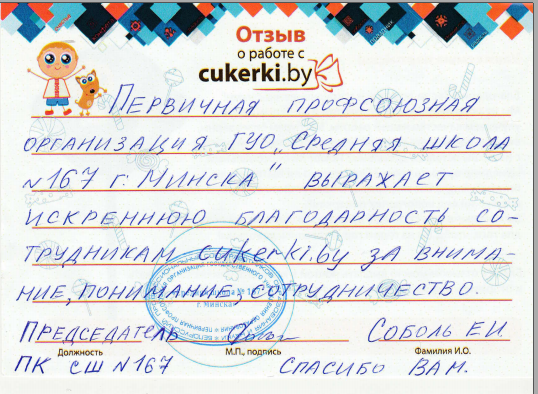 Отзыв
о работе с
cukerki.by
Первичная профсоюзная
организация ГУО „Средняя школа
№167 г. Минска" выражает
искреннюю благодарность со-
трудникам cukerki.by за внима-
ние, понимание, сотрудничество.
Председатель Соболь Е.И.
Должность М.П., подпись Фамилия И.О.
ПК СШ №167 Спасибо Вам.
г. Минска